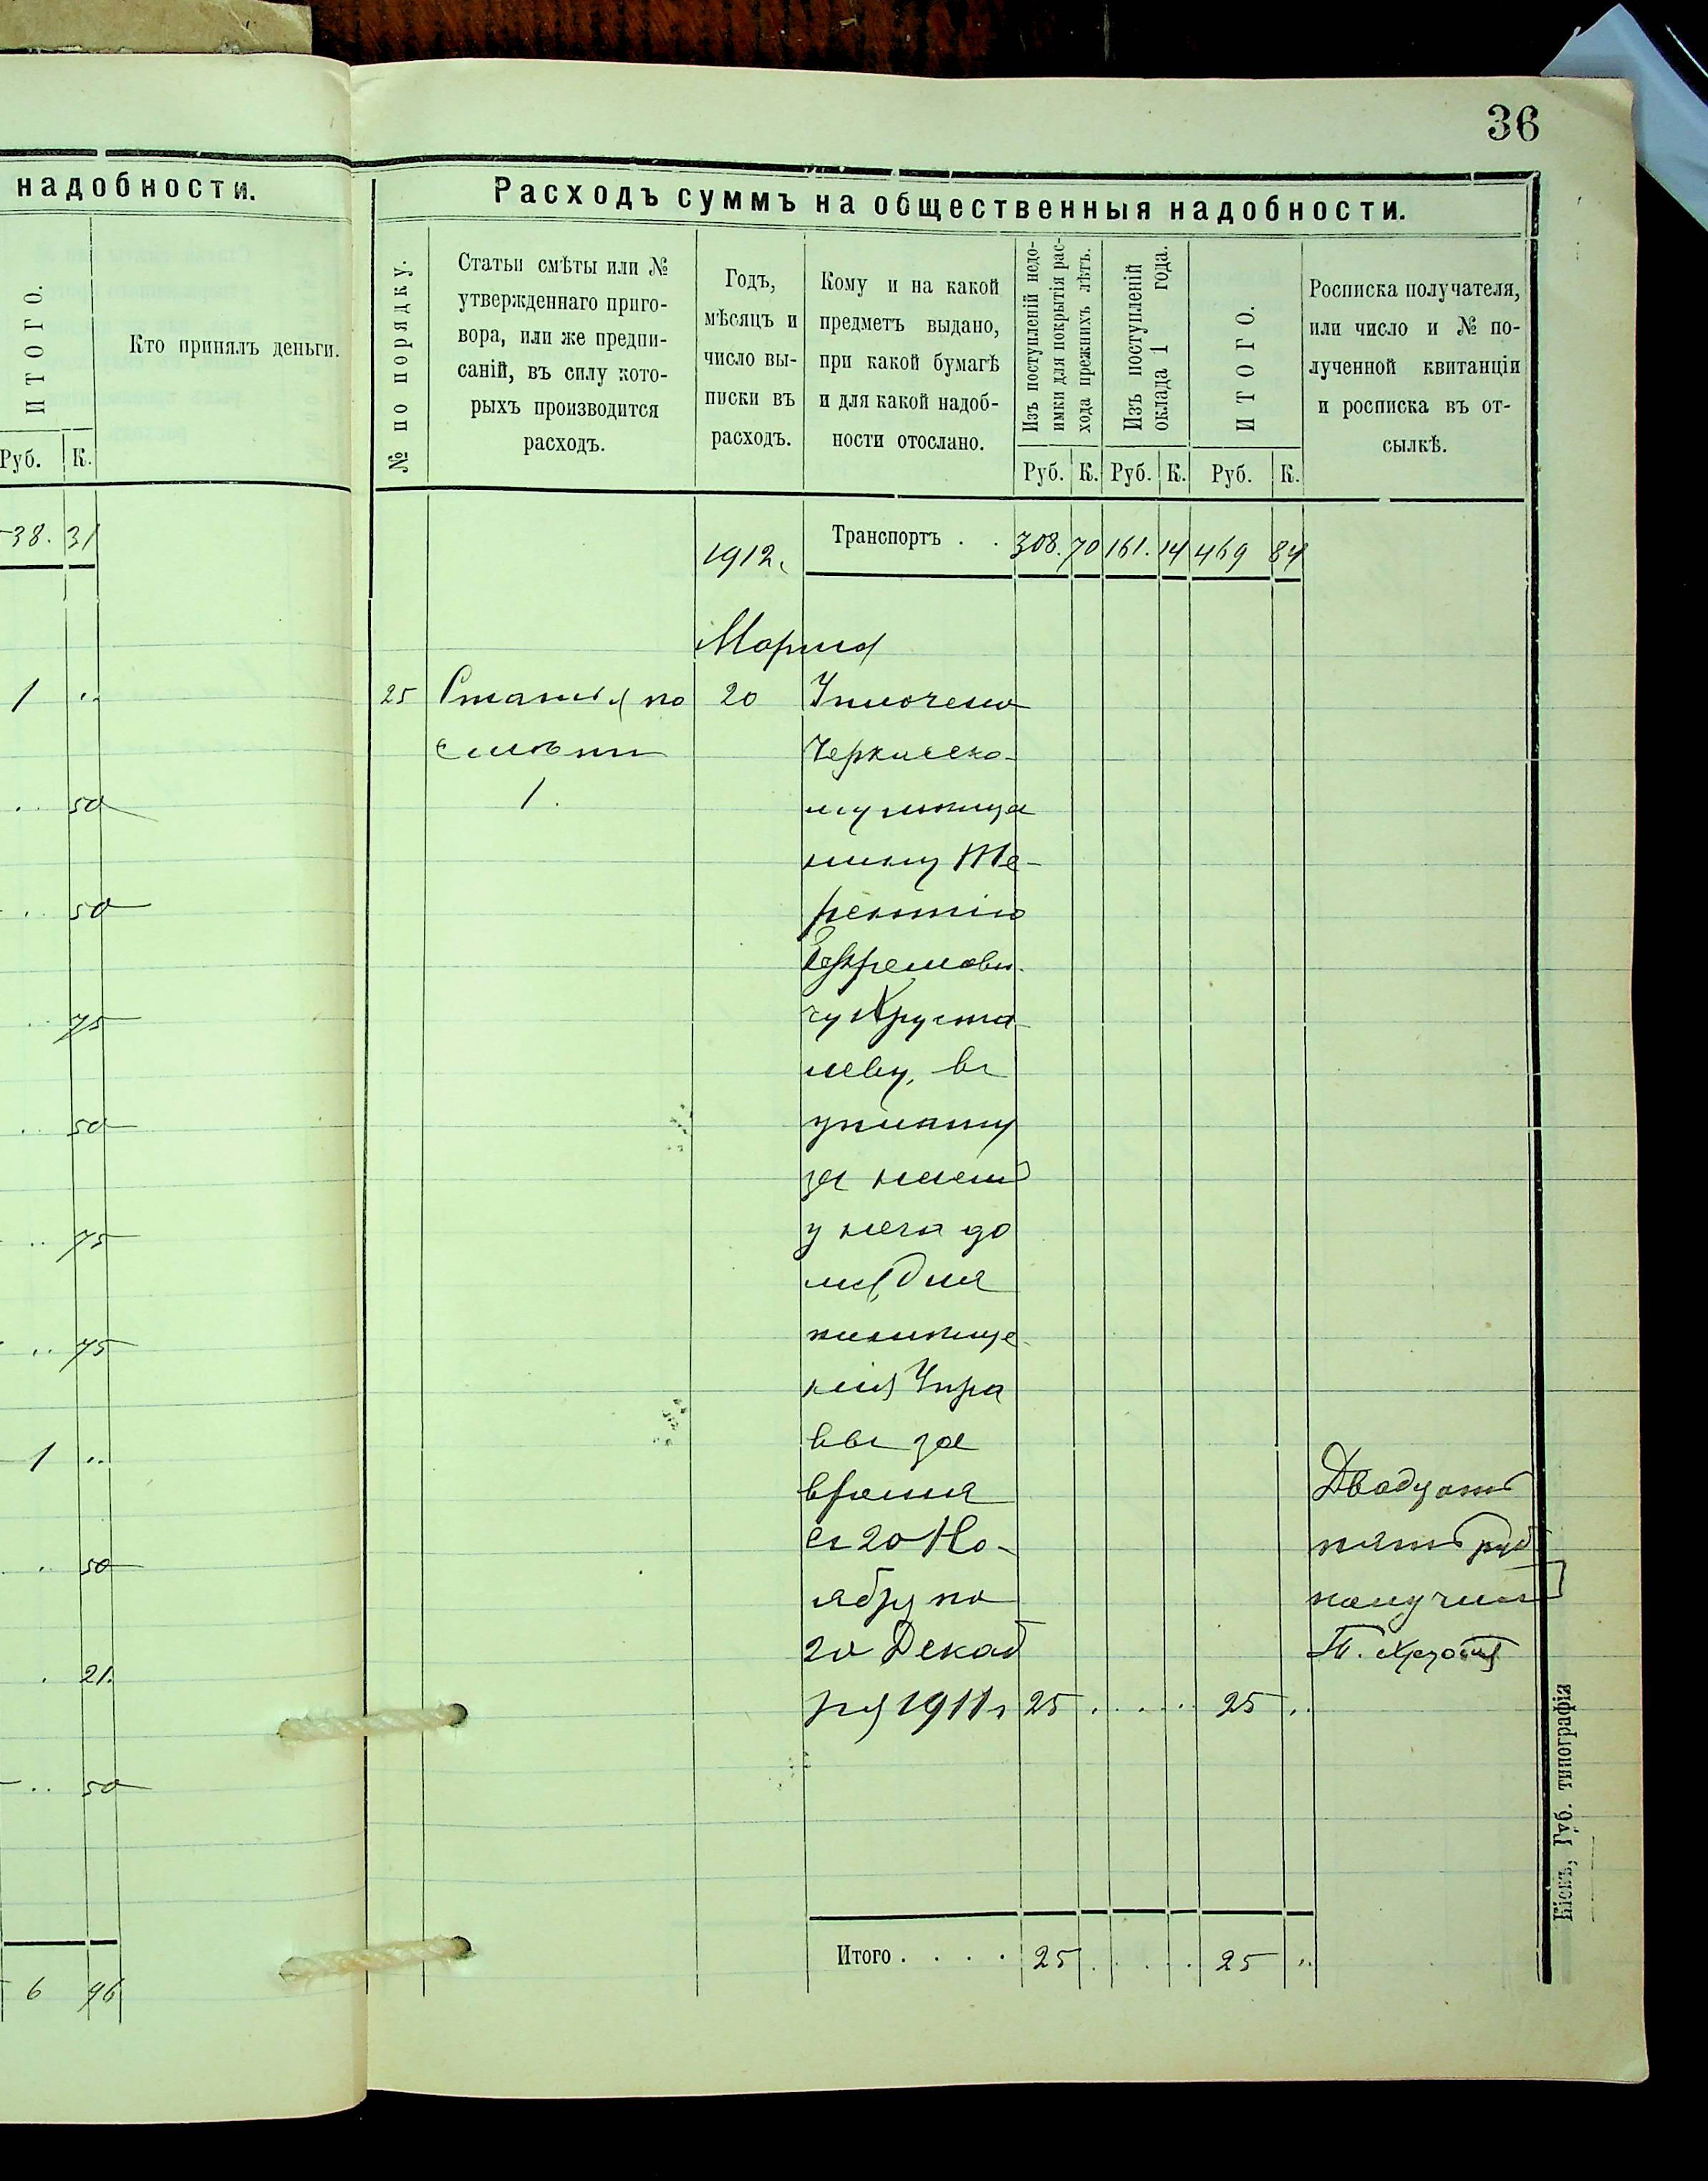 36
надобности.
ИТОГО.
Кто принялъ деньги.
Руб. К.
38. 31
1 ..
.. 50
.. 50
.. 75
.. 50
.. 75
.. 75
1 ..
. 50
. 21.
.. 50
6 96
Расходъ суммъ на общественныя надобности.
№ по порядку.
Статьи смѣты или №
утвержденнаго приго-
вора, или же предпи-
саній, въ силу кото-
рыхъ производится
расходъ.
Годъ,
мѣсяцъ и
число вы-
писки въ
расходъ.
Кому и на какой
предметъ выдано,
при какой бумагѣ
и для какой надоб-
ности отослано.
Изъ поступленій недо-
имки для покрытія рас-
хода прежнихъ лѣтъ.
Изъ поступленій
оклада 1 года.
ИТОГО.
Росписка получателя,
или число и № по-
лученной квитанціи
и росписка въ от-
сылкѣ.
Руб. К. Руб. К. Руб. К.
1912.
Транспортъ . . 308. 70 161. 14 469 84
Марта
25 Статья по 20 Уплочено
смѣтѣ
1.
Черкаско-
му мѣща
нину Те-
рентію
Ефремови-
чу Хруста
леву, въ
уплату
за наемъ
у него до
ма, для
помѣще-
нія Упра
вы за
время
съ 20 Но-
ября по
20 Декаб
ря 1911 г 25 . . . . 25 ..
Двадцать
пять руб
получилъ
Т. Хруст
Итого . . . . 25 . . . . 25 ..
Біскъ, Губ. типографія